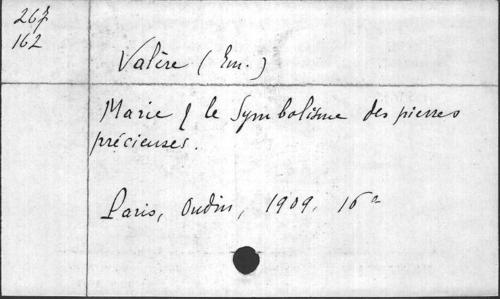 162
Valère (Em.)
Marie le Symbolisme des pierres
précieuses.
Paris, Oudin, 1909. 16°